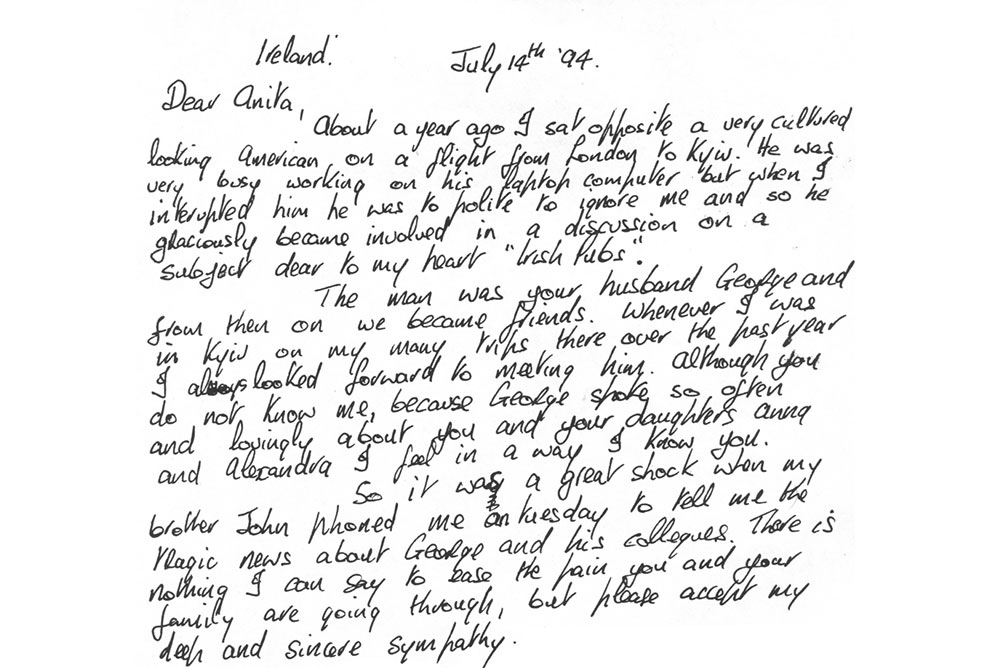 Ireland. July 14th '94.
Dear Anita,
About a year ago I sat opposite a very cultured
looking American on a flight from London to Kyiv. He was
very busy working on his laptop computer but when I
interupted him he was to polite to ignore me and so he
graciously became involved in a discussion on a
subject dear to my heart "Irish Pubs".
The man was your husband George and
from then on we became friends. Whenever I was
in Kyiv on my many trips there over the past year
I always looked forward to meeting him. Although you
do not know me, because George spoke so often
and lovingly about you and your daughters Anna
and Alexandra I feel in a way I know you.
So it was a great shock when my
brother John phoned me on tuesday to tell me the
tragic news about George and his collegues. There is
nothing I can say to ease the pain you and your
family are going through, but please accept my
deep and sincere sympathy.